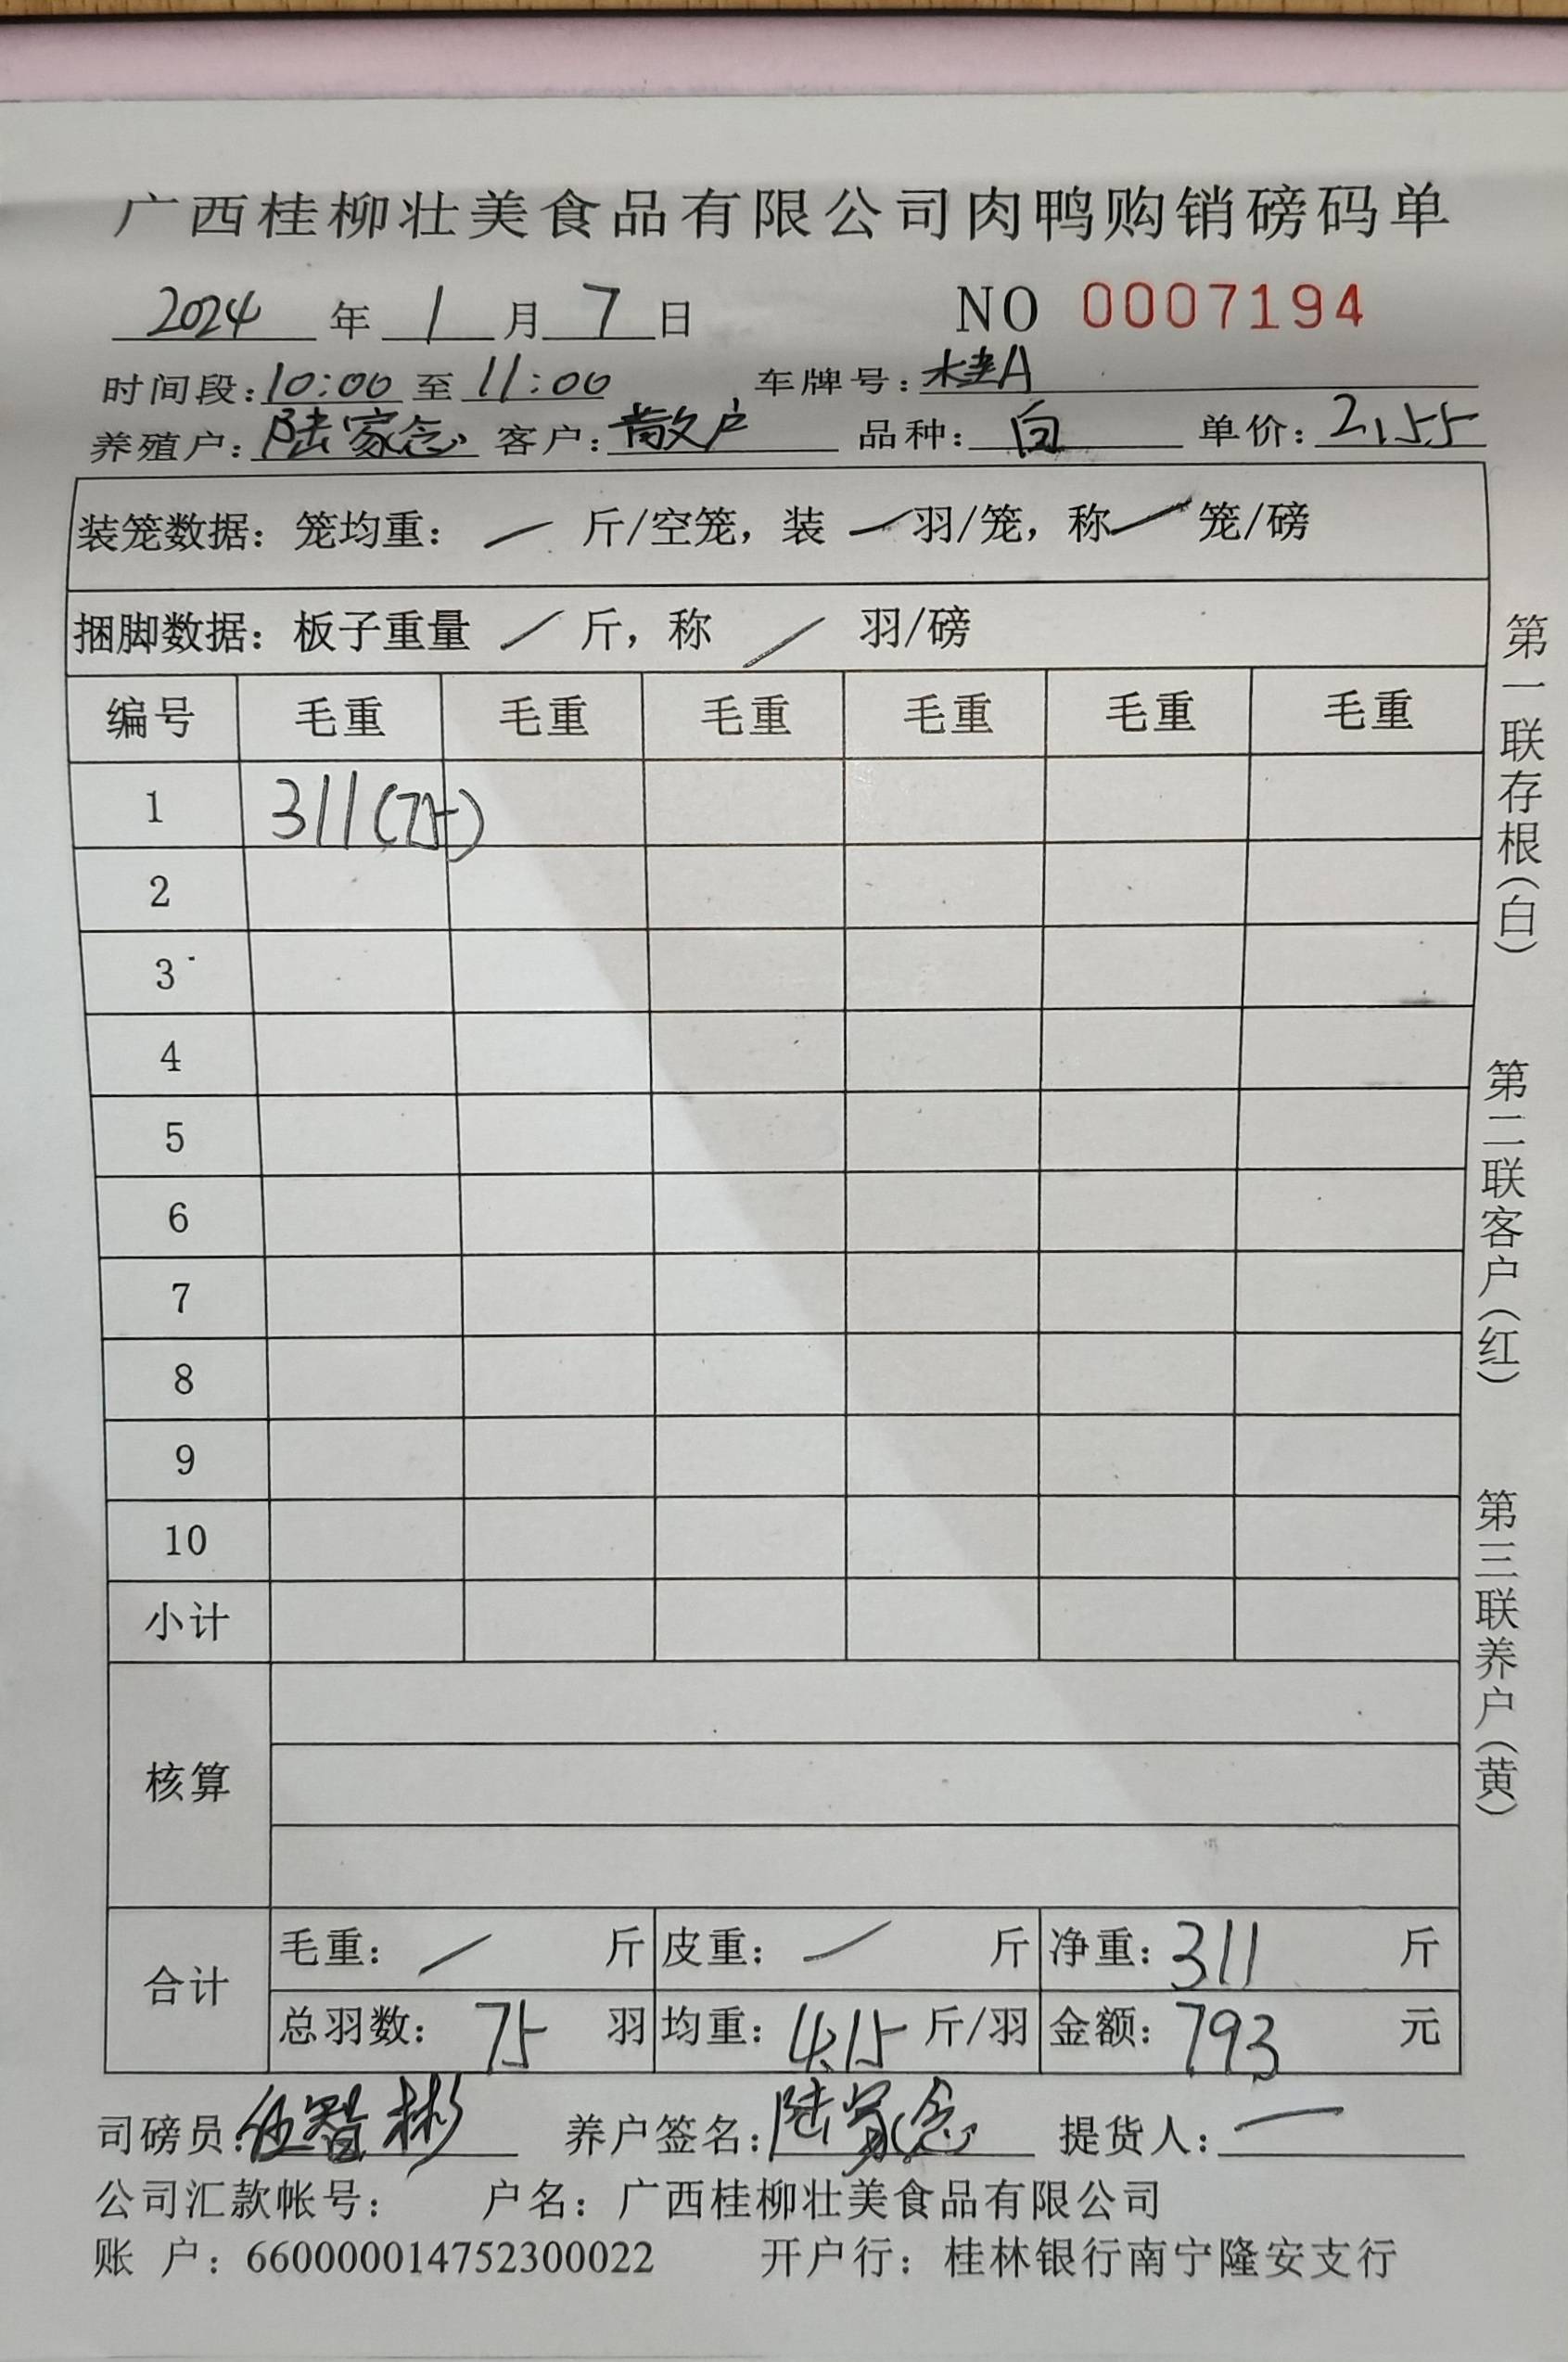 广西桂柳壮美食品有限公司肉鸭购销磅码单
2024 年 1 月 7 日 NO 0007194
时间段: 10:00 至 11:00 车牌号: 桂A
养殖户: 陆家念 客户: 散户 品种: 白 单价: 2.55
装笼数据: 笼均重: / 斤/空笼, 装 / 羽/笼, 称 / 笼/磅
捆脚数据: 板子重量 / 斤, 称 / 羽/磅
编号 毛重 毛重 毛重 毛重 毛重 毛重
1 311(75)
2
3
4
5
6
7
8
9
10
小计
核算
合计 毛重: / 斤 皮重: / 斤 净重: 311 斤
总羽数: 75 羽 均重: 4.15 斤/羽 金额: 793 元
司磅员: 伍智彬 养户签名: 陆家念 提货人: 一
公司汇款帐号: 户名: 广西桂柳壮美食品有限公司
账 户: 660000014752300022 开户行: 桂林银行南宁隆安支行
第一联存根(白)
第二联客户(红)
第三联养户(黄)